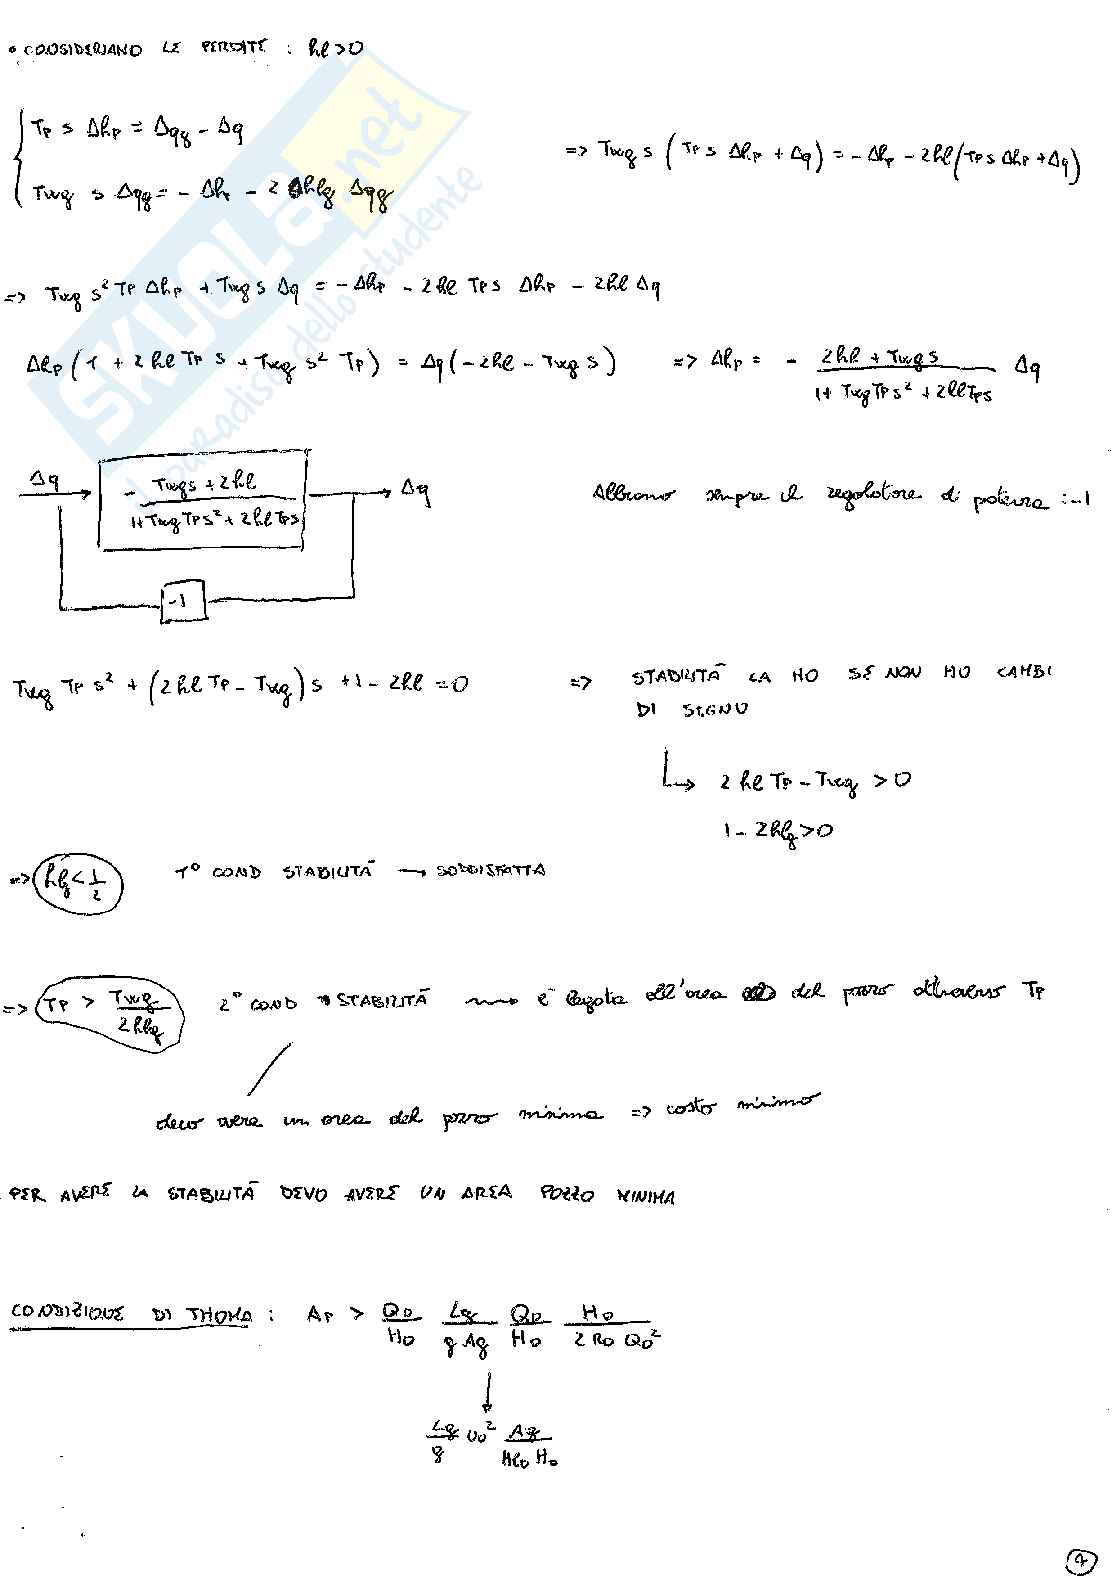 • CONSIDERIAMO LE PERDITE : hl>0
{ Tp s Δhp = Δqg - Δq
Twg s Δqg = - Δhp - 2 Δhlg Δqg
=> Twg s ( Tp s Δhp + Δq ) = - Δhp - 2hl ( Tp s Δhp + Δq )
=> Twg s² Tp Δhp + Twg s Δq = - Δhp - 2hl Tp s Δhp - 2hl Δq
Δhp ( 1 + 2hl Tp s + Twg s² Tp ) = Δq ( -2hl - Twg s ) => Δhp = - (2hl + Twg s)/(1+ Twg Tp s² + 2hl Tp s) Δq
Δq → - (Twg s + 2hl)/(1+ Twg Tp s² + 2hl Tp s) → Δq
Abbiamo sempre il regolatore di potenza : -1
-1
Twg Tp s² + (2hl Tp - Twg) s + 1 - 2hl = 0 => STABILITÀ LA HO SE NON HO CAMBI
DI SEGNO
↳ 2hl Tp - Twg > 0
1 - 2hlg > 0
=> hlg < 1/2 1° COND STABILITÀ → SODDISFATTA
=> Tp > Twg/2hlg 2° COND STABILITÀ è legata all'area del pozzo attraverso Tp
devo avere un area del pozzo minima => costo minimo
PER AVERE LA STABILITÀ DEVO AVERE UN AREA POZZO MINIMA
CONDIZIONE DI THOMA : Ap > Q0/H0 Lg/(g Ag) Q0/H0 H0/(2 R0 Q0²)
↓
Lg/g U0² Ag/(Hl0 H0)
7
SKUOLA.net
il paradiso dello studente